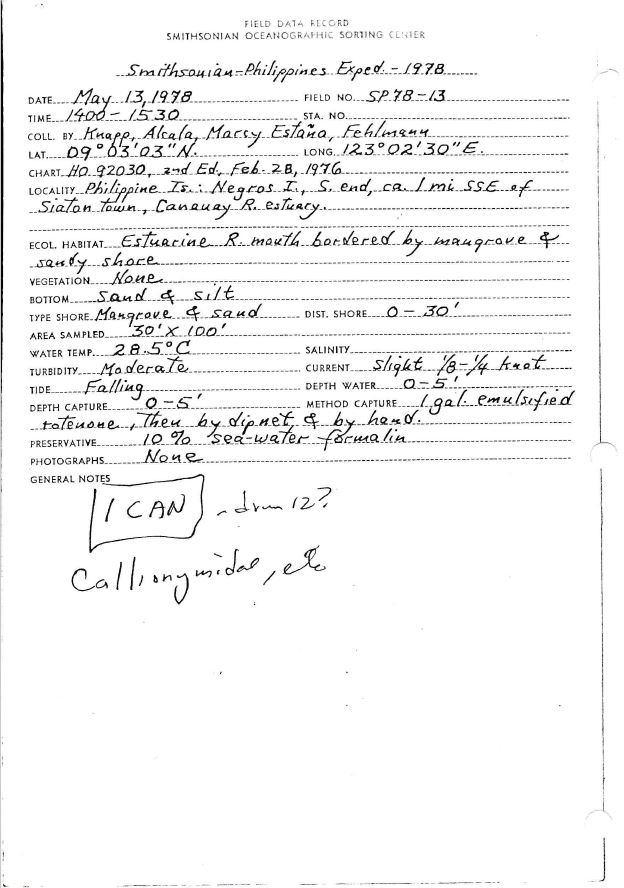 FIELD DATA RECORD
SMITHSONIAN OCEANOGRAPHIC SORTING CENTER
Smithsonian-Philippines Exped. - 1978
DATE May 13, 1978 FIELD NO. SP78-13
TIME 1400-1530 STA. NO.
COLL. BY Knapp, Alcala, Marsy Estaña, Fehlmann
LAT. 09°03'03"N. LONG. 123°02'30"E.
CHART HO 92030, 2nd Ed, Feb. 28, 1976
LOCALITY Philippine Is.: Negros I., S. end, ca. 1 mi SSE of
Siaton town, Canauay R. estuary.
ECOL. HABITAT Estuarine R. mouth bordered by mangrove &
sandy shore
VEGETATION None
BOTTOM Sand & silt
TYPE SHORE Mangrove & sand DIST. SHORE 0-30'
AREA SAMPLED 30' X 100'
WATER TEMP. 28.5°C SALINITY
TURBIDITY Moderate CURRENT Slight 1/8-1/4 knot
TIDE Falling DEPTH WATER 0-5'
DEPTH CAPTURE 0-5' METHOD CAPTURE 1 gal. emulsified
rotenone, Then by dipnet, & by hand.
PRESERVATIVE 10% sea-water formalin
PHOTOGRAPHS None
GENERAL NOTES
1 CAN - drum 12?
Callionymidae, etc